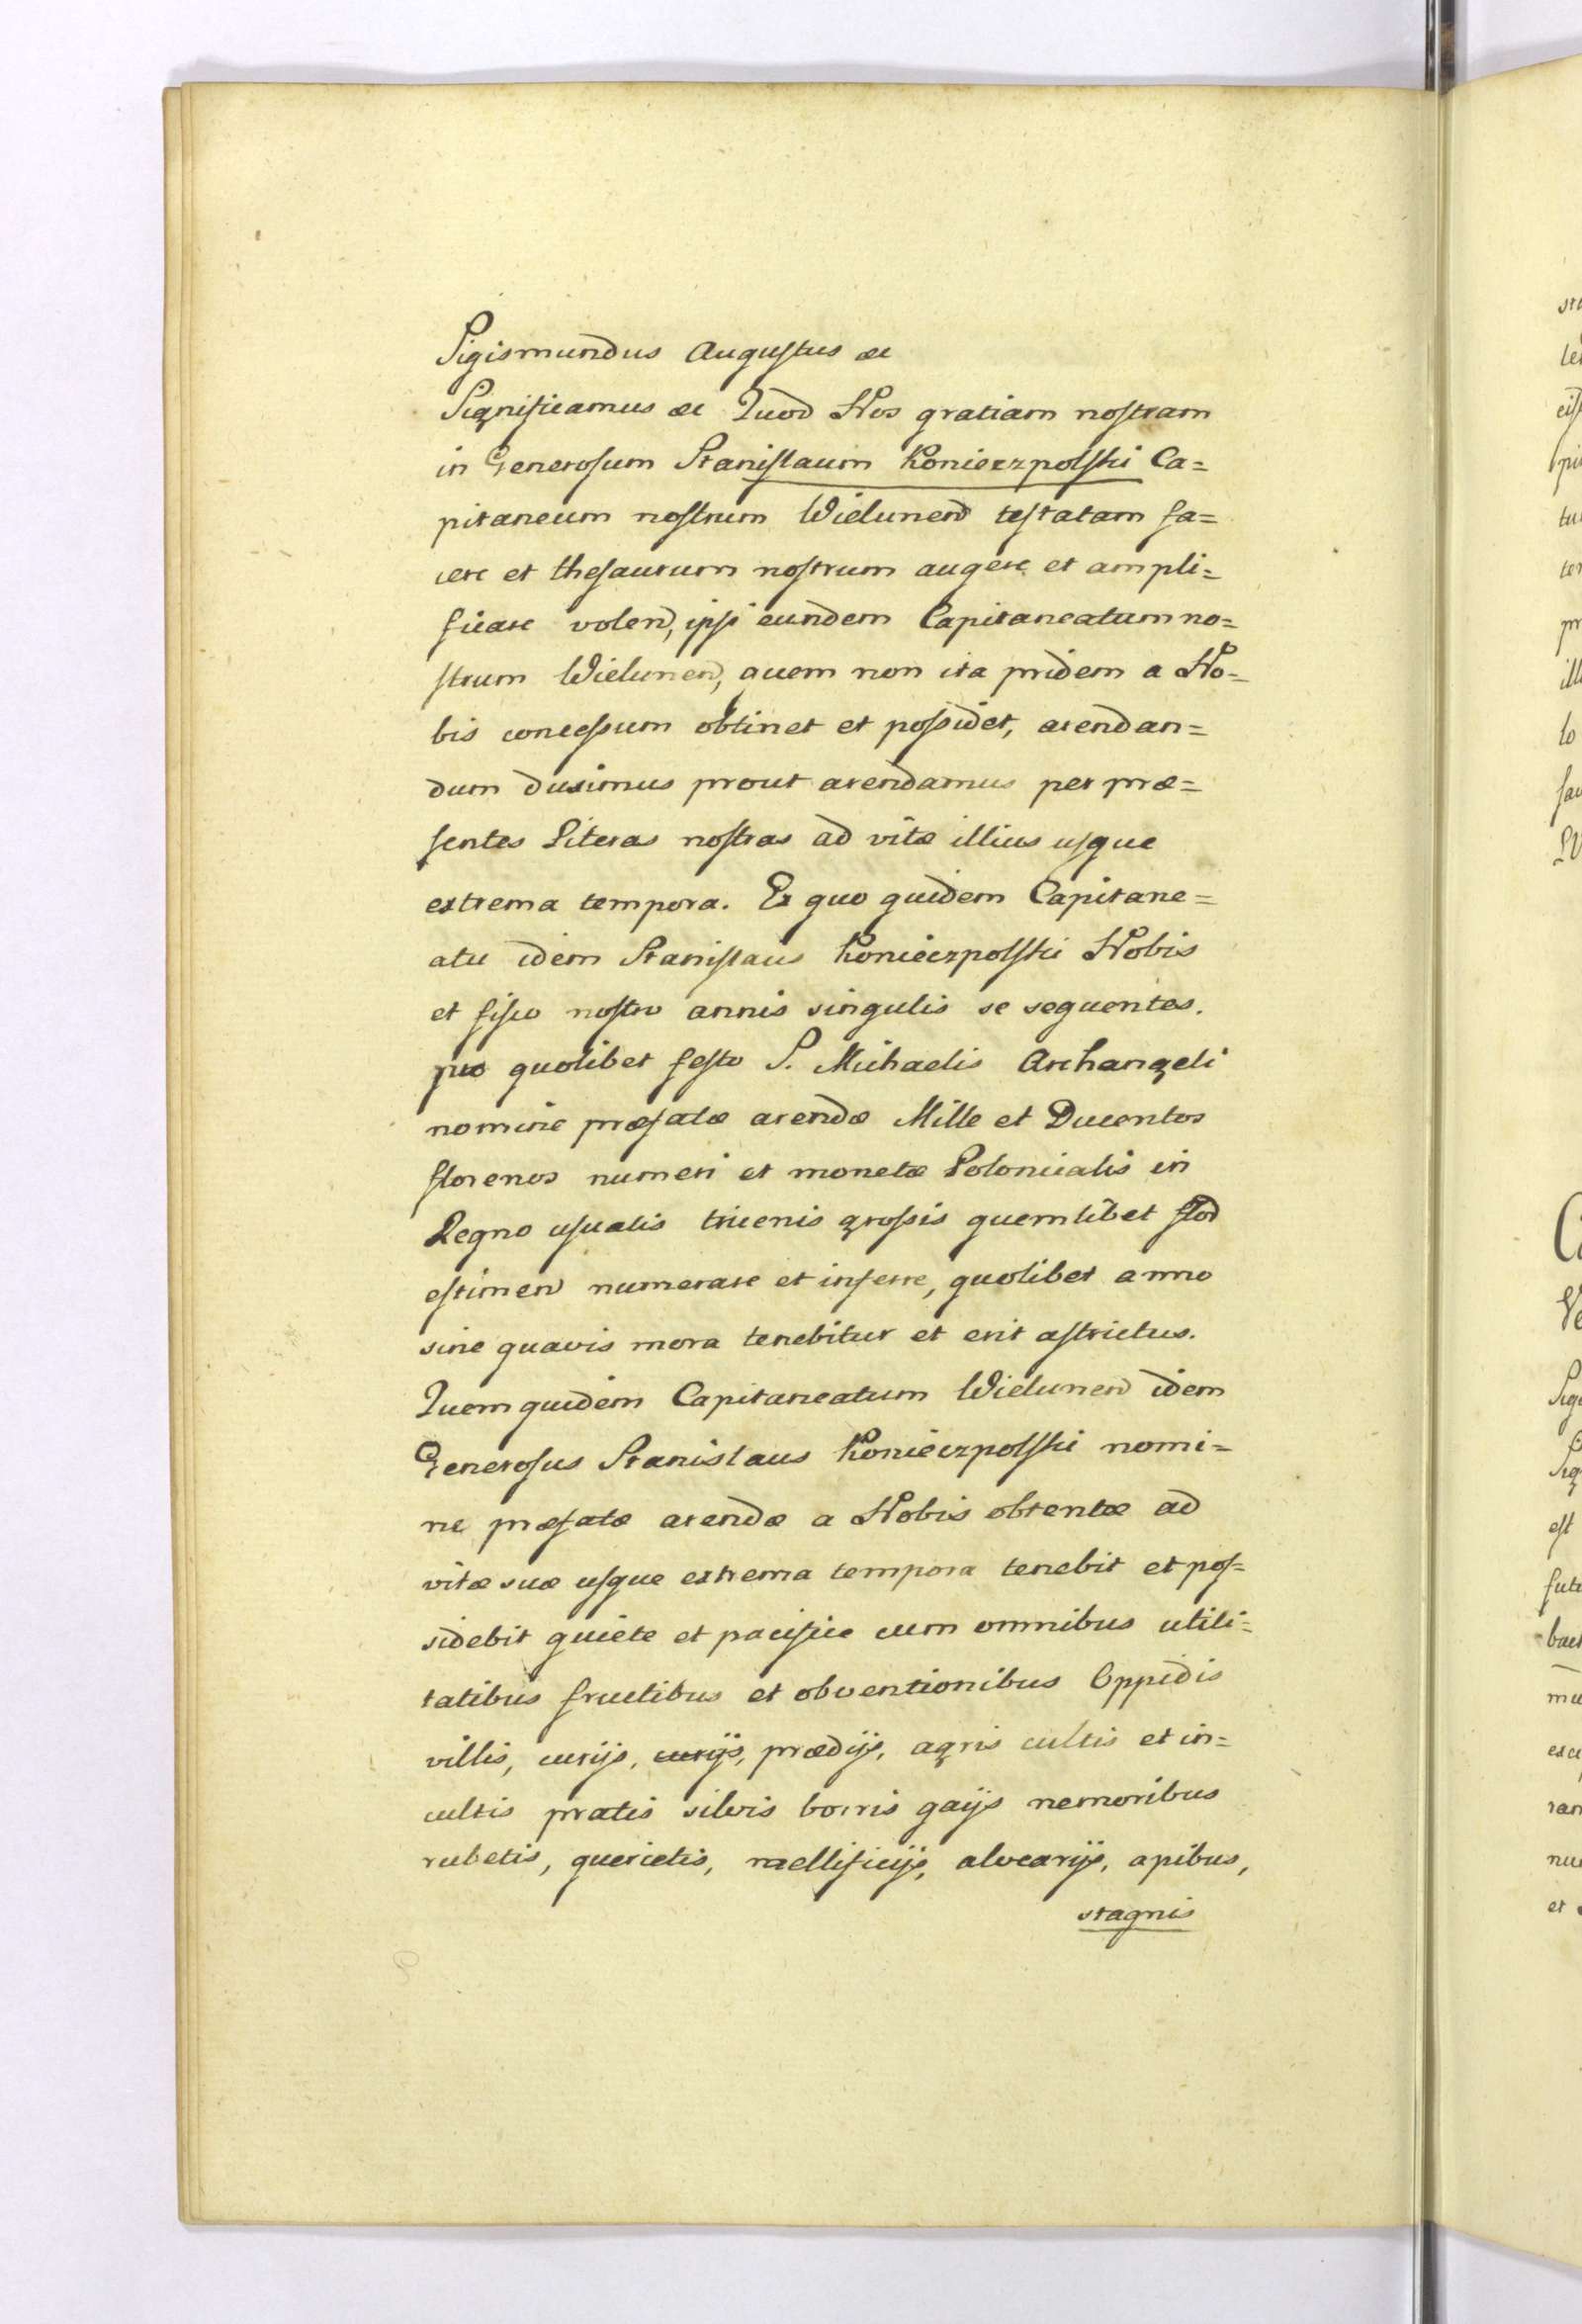 Sigismundus Augustus &c
Significamus &c Quod Nos gratiam nostram
in Generosum Stanislaum Konieczpolski Ca=
pitaneum nostrum Wielunen testatam fa=
cere et thesaurum nostrum augere et ampli=
ficare volen, ipsi eundem Capitaneatum no=
strum Wielunen, quem non ita pridem a No=
bis concessum obtinet et possidet, arendan=
dum duximus prout arendamus per præ=
sentes Literas nostras ad vitæ illius usque
extrema tempora. Ex quo quidem Capitane=
atu idem Stanislaus Konieczpolski Nobis
et fisco nostro annis singulis se sequentes.
pro quolibet festo S. Michaelis Archangeli
nomine præfatæ arendæ Mille et Ducentos
florenos numeri et monetæ Polonicalis in
Regno usualis tricenis grossis quemlibet flod
estimen numerare et inferre, quolibet anno
sine quavis mora tenebitur et erit astrictus.
Quem quidem Capitaneatum Wielunen idem
Generosus Stanislaus Konieczpolski nomi=
ne præfatæ arendæ a Nobis obtentæ ad
vitæ suæ usque extrema tempora tenebit et pos=
sidebit quiete et pacifice cum omnibus utili=
tatibus fructibus et obventionibus Oppidis
villis, curijs, curijs, prædijs, agris cultis et in=
cultis pratis silvis borris gaijs nemoribus
rubetis, quercetis, mellificijs, alvearijs, apibus,
stagnis